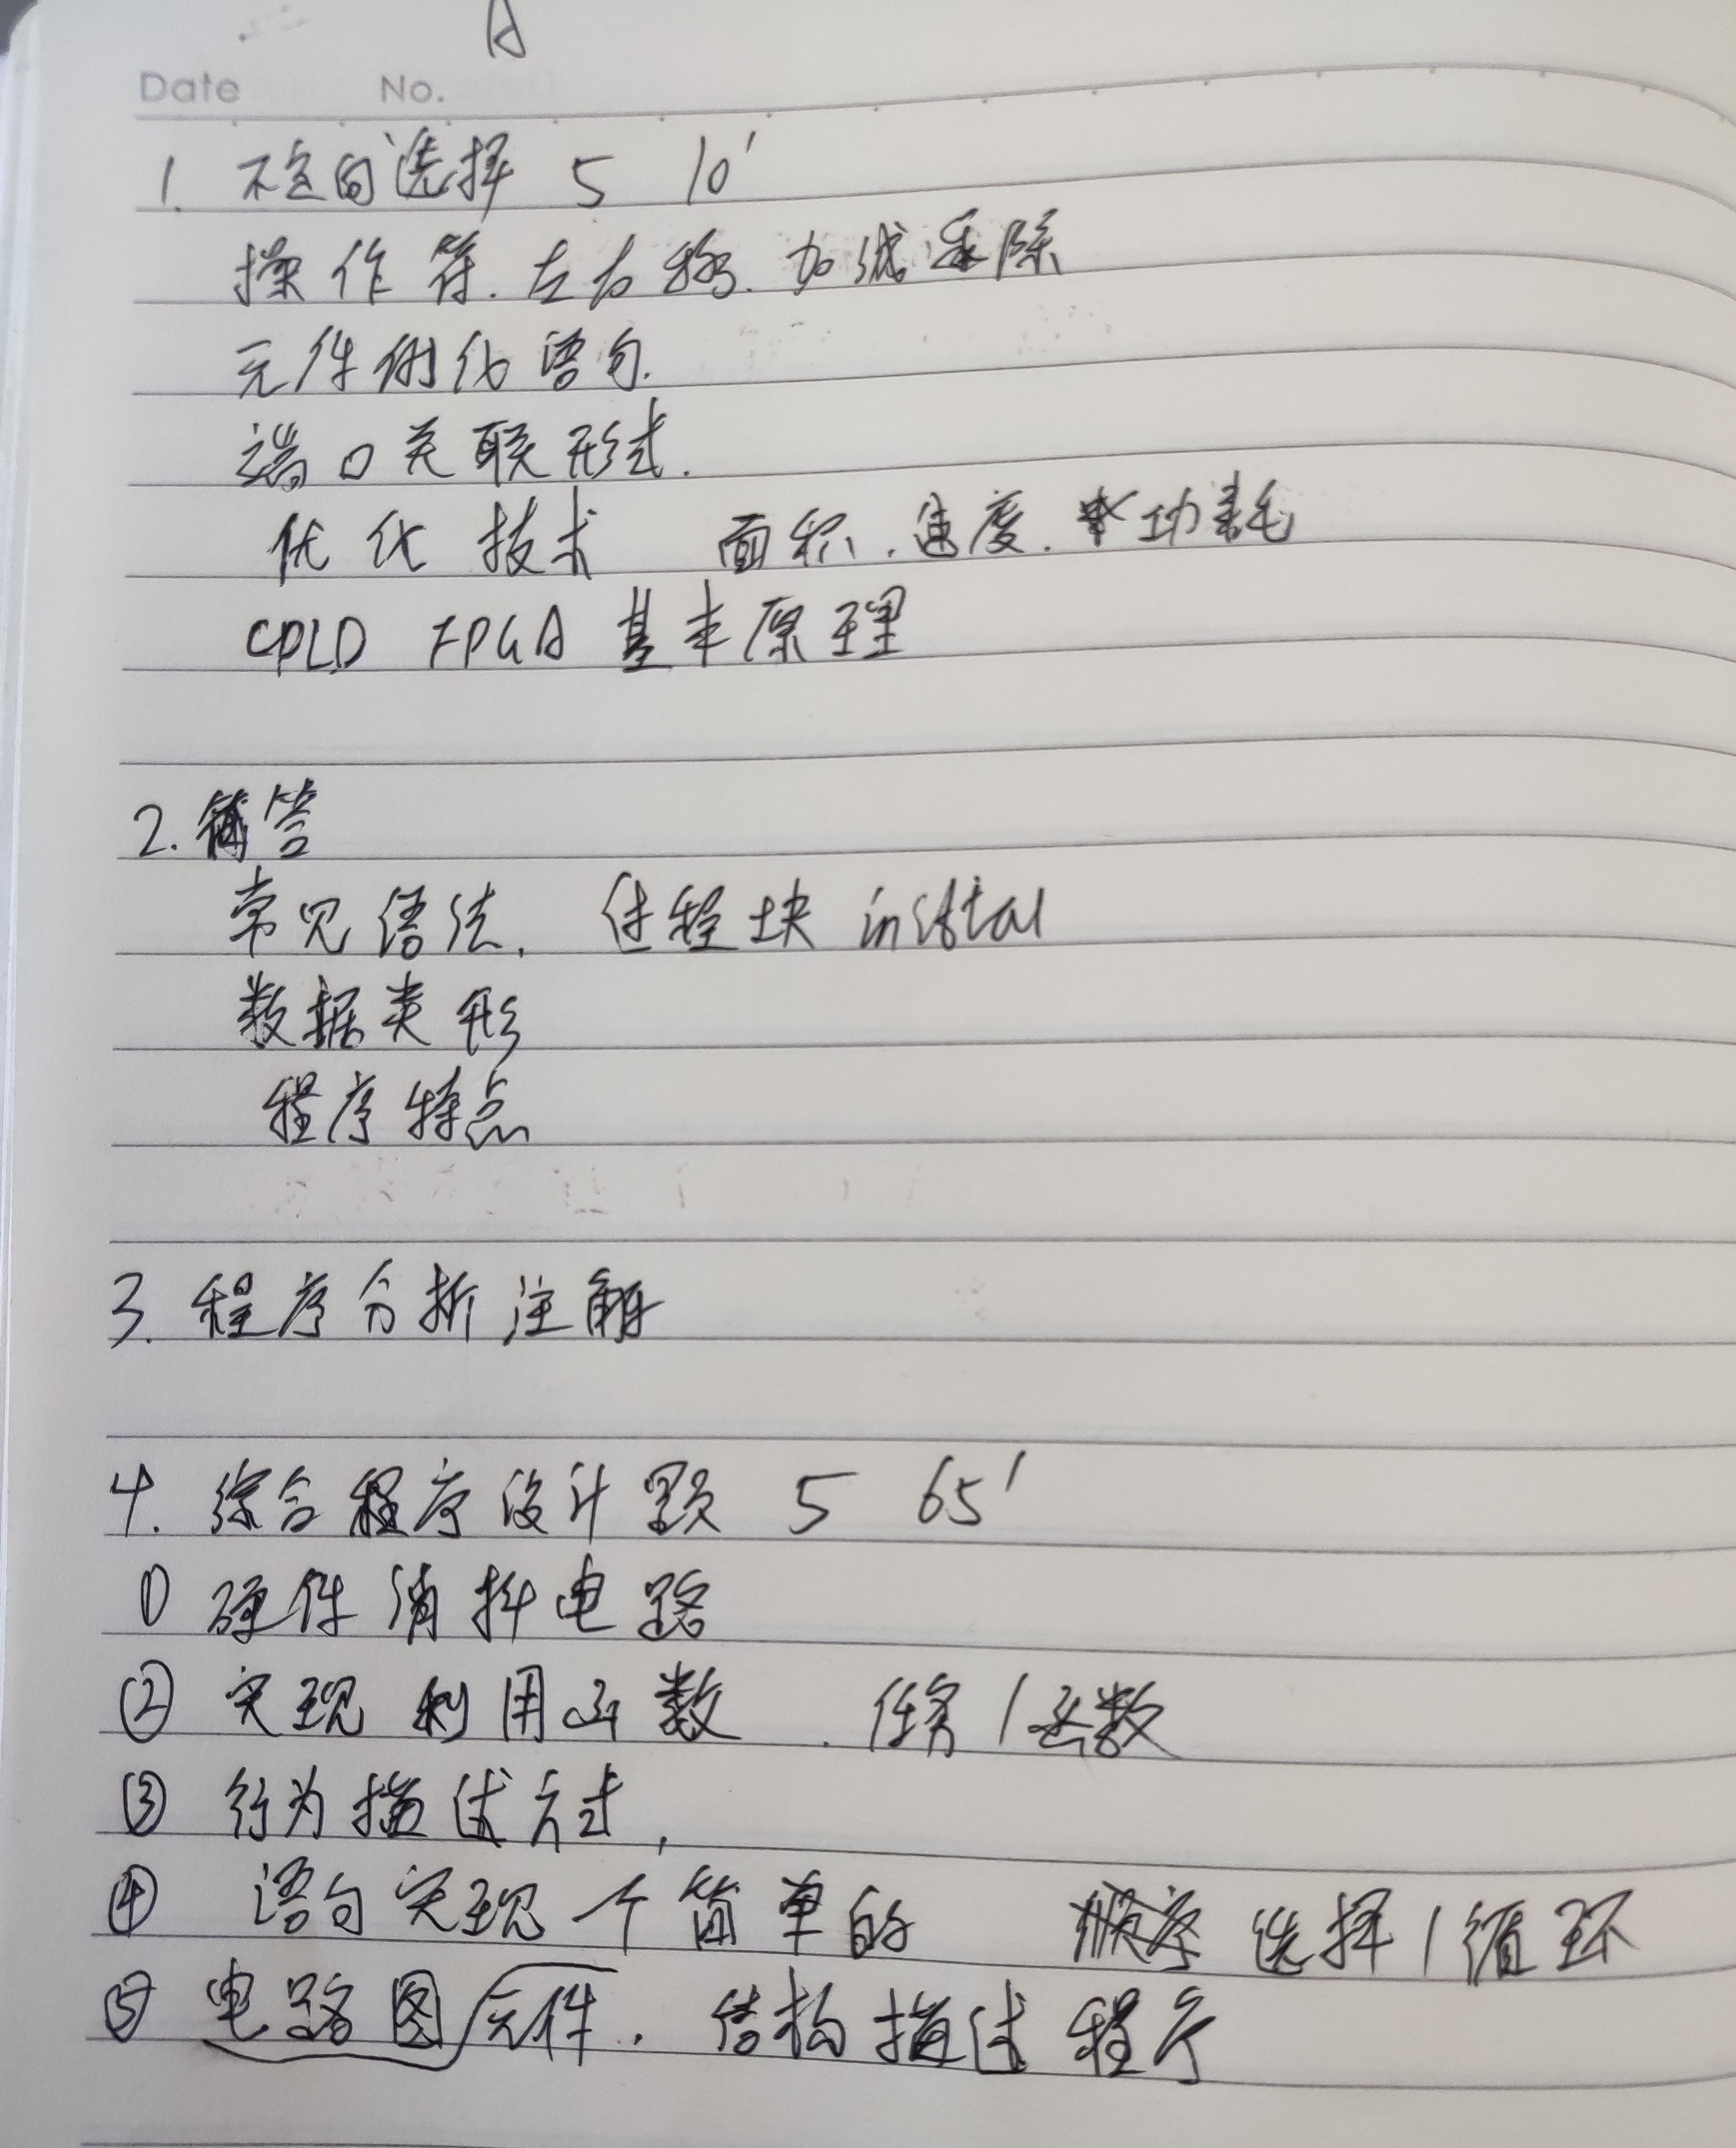 A
Date No.
1. 不定向选择 5 10'
操作符.左右移.加减乘除
元件例化语句.
端口关联形式.
优化技术 面积.速度.功耗
CPLD FPGA 基本原理
2. 简答
常见语法. 过程块 initial
数据类形
程序特点
3. 程序分析注解
4. 综合程序设计题 5 65'
① 硬件消抖电路
② 实现利用函数. 任务/函数
③ 行为描述方式,
④ 语句实现个简单的 顺序 选择/循环
⑤ 电路图/元件. 结构描述程序